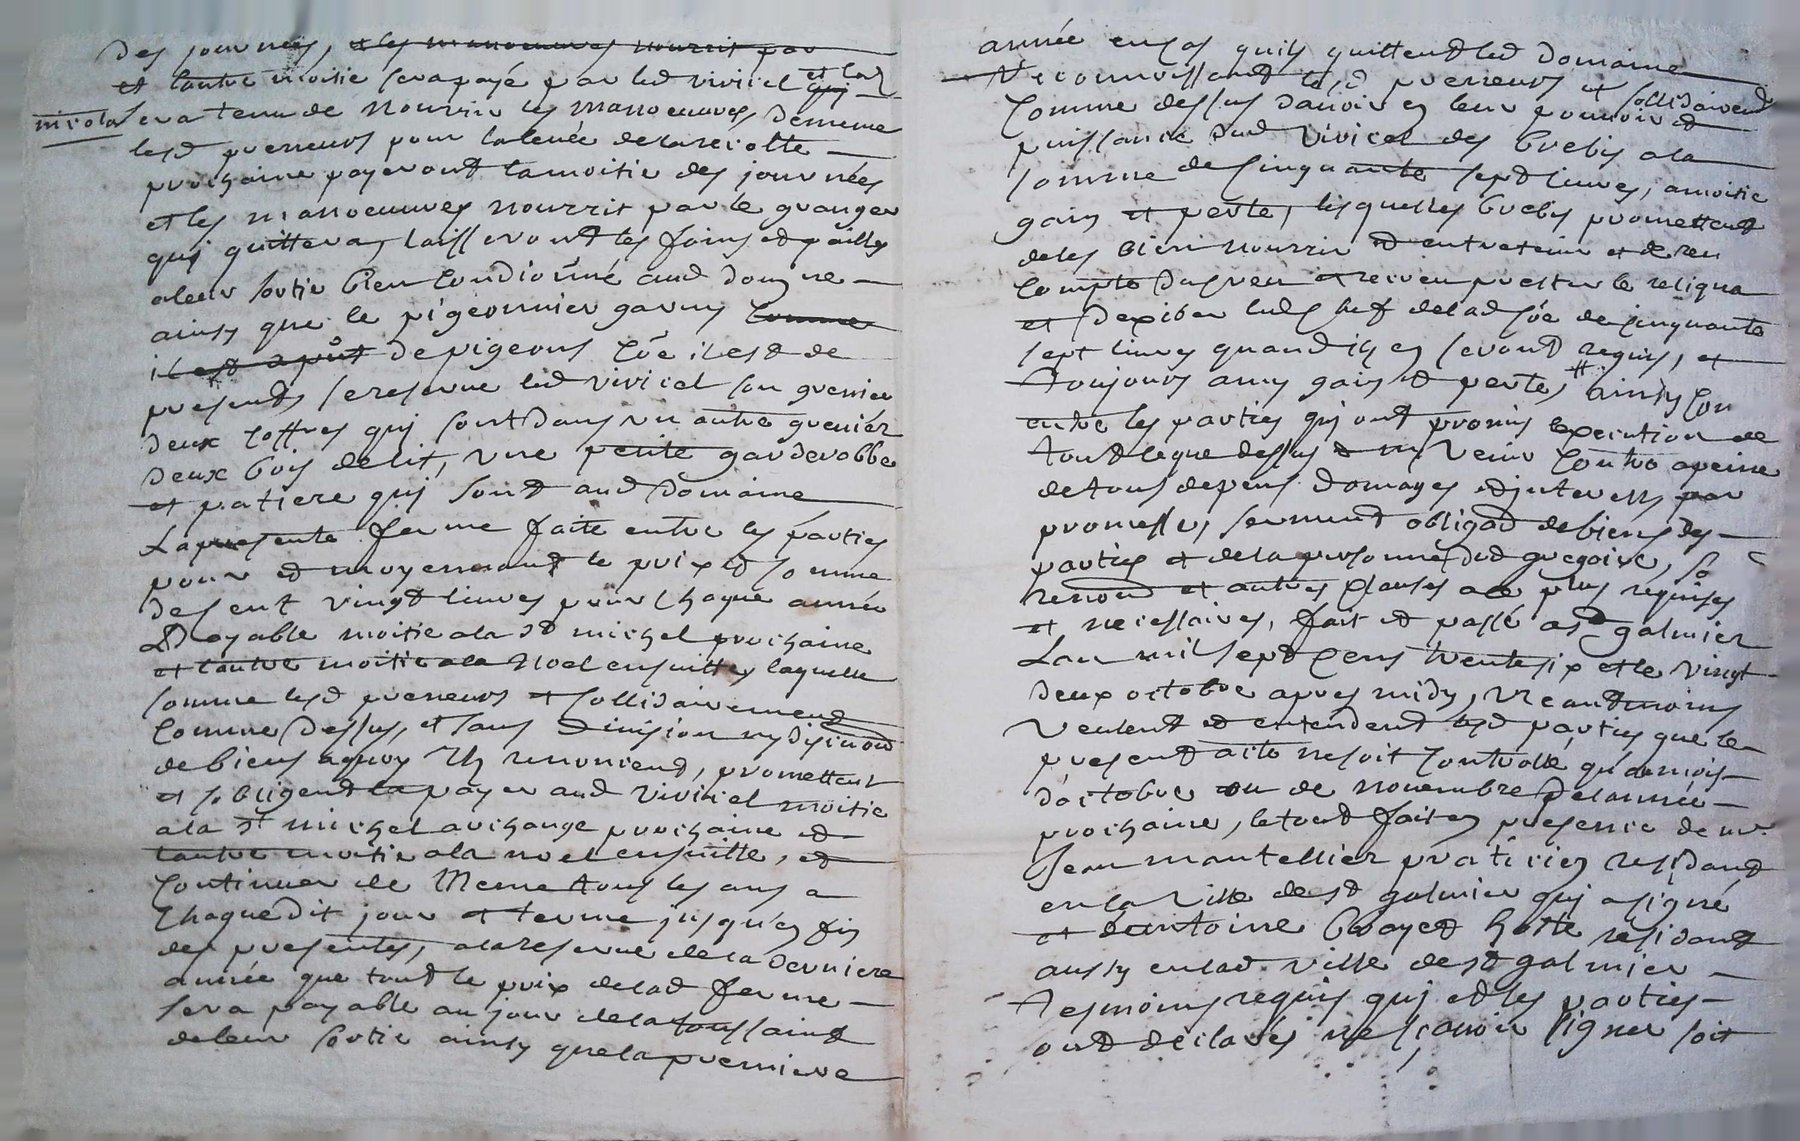 des journées, et les manoeuvres nourrit par
et lautre moitié sera payé par led vivicel et led
nicolas sera tenu de nourrir les manoeuvres de meme
lesd preneurs pour la levée de la recolte
prochaine payeront la moitié des journées
et les manoeuvres nourrit par le granger
qui quittera, laisseront les foins et pailles
a leur sortie bien condionné aud domaine
ainsy que le pigeonnier garny comme
il est a pnt de pigeons coe il est de
present, se reserve led vivicel son grenier
deux coffres qui sont dans un autre grenier
deux bois de lit, une petite garderobbe
et patiere qui sont aud domaine
La presente ferme faite entre les parties
pour et moyennant le prix et somme
de cent vingt livres pour chaque année
payable moitié a la st michel prochaine
et lautre moitié a la noel ensuitte, laquelle
somme lesd preneurs et sollidairement
comme dessus, et sans division ny discution
de biens aquoy ils renoncent, promettent
et sobligent la payer aud vivicel moitié
a la st michel archange prochaine et
lautre moitié a la noel ensuitte, et
continuer de meme tous les ans a
chaque dit jour et terme jusqu'en fin
des presentes, a la reserve de la derniere
année que tout le prix de lad ferme
sera payable au jour de la toussaint
de leur sortie ainsy que la premiere
année en cas quils quittent led domaine
reconnoissant lesd preneurs et sollidairement
comme dessus davoir en leur pouvoir et
puissance dud vivicel des brebis a la
somme de cinquante sept livres, a moitié
gain et perte, lesquelles brebis promettent
de les bien nourrir et entretenir et den
compte du creu et recreu prester le reliqua
et dexiber lad somme de cinquante
sept livres quand ils en seront requis, et
toujours a my gain et perte, # ainsy con
entre les parties qui ont promis lexecution de
tout ce que dessus et ny venir contre a peine
de tous depens domages et interests par
promesse, serment obligaon de biens des
parties et de la personne dud gregoire,
renonc et autres clauses a ce plus requises
et necessaires, fait et passé a st galmier
Lan mil sept cens trente six et le vingt
deux octobre apres midy, neantmoins
veulent et entendent lesd parties que le
present acte ne soit controllé qu'au mois
d'octobre ou de novembre de lannée
prochaine, le tout fait en presence de mr
Jean mantellier praticien residant
en la ville de st galmier qui a signé
et dantoine boayet hotte residant
aussy en lad ville de st galmier
tesmoins requis qui et les parties
ont declarés ne scavoir signer soit